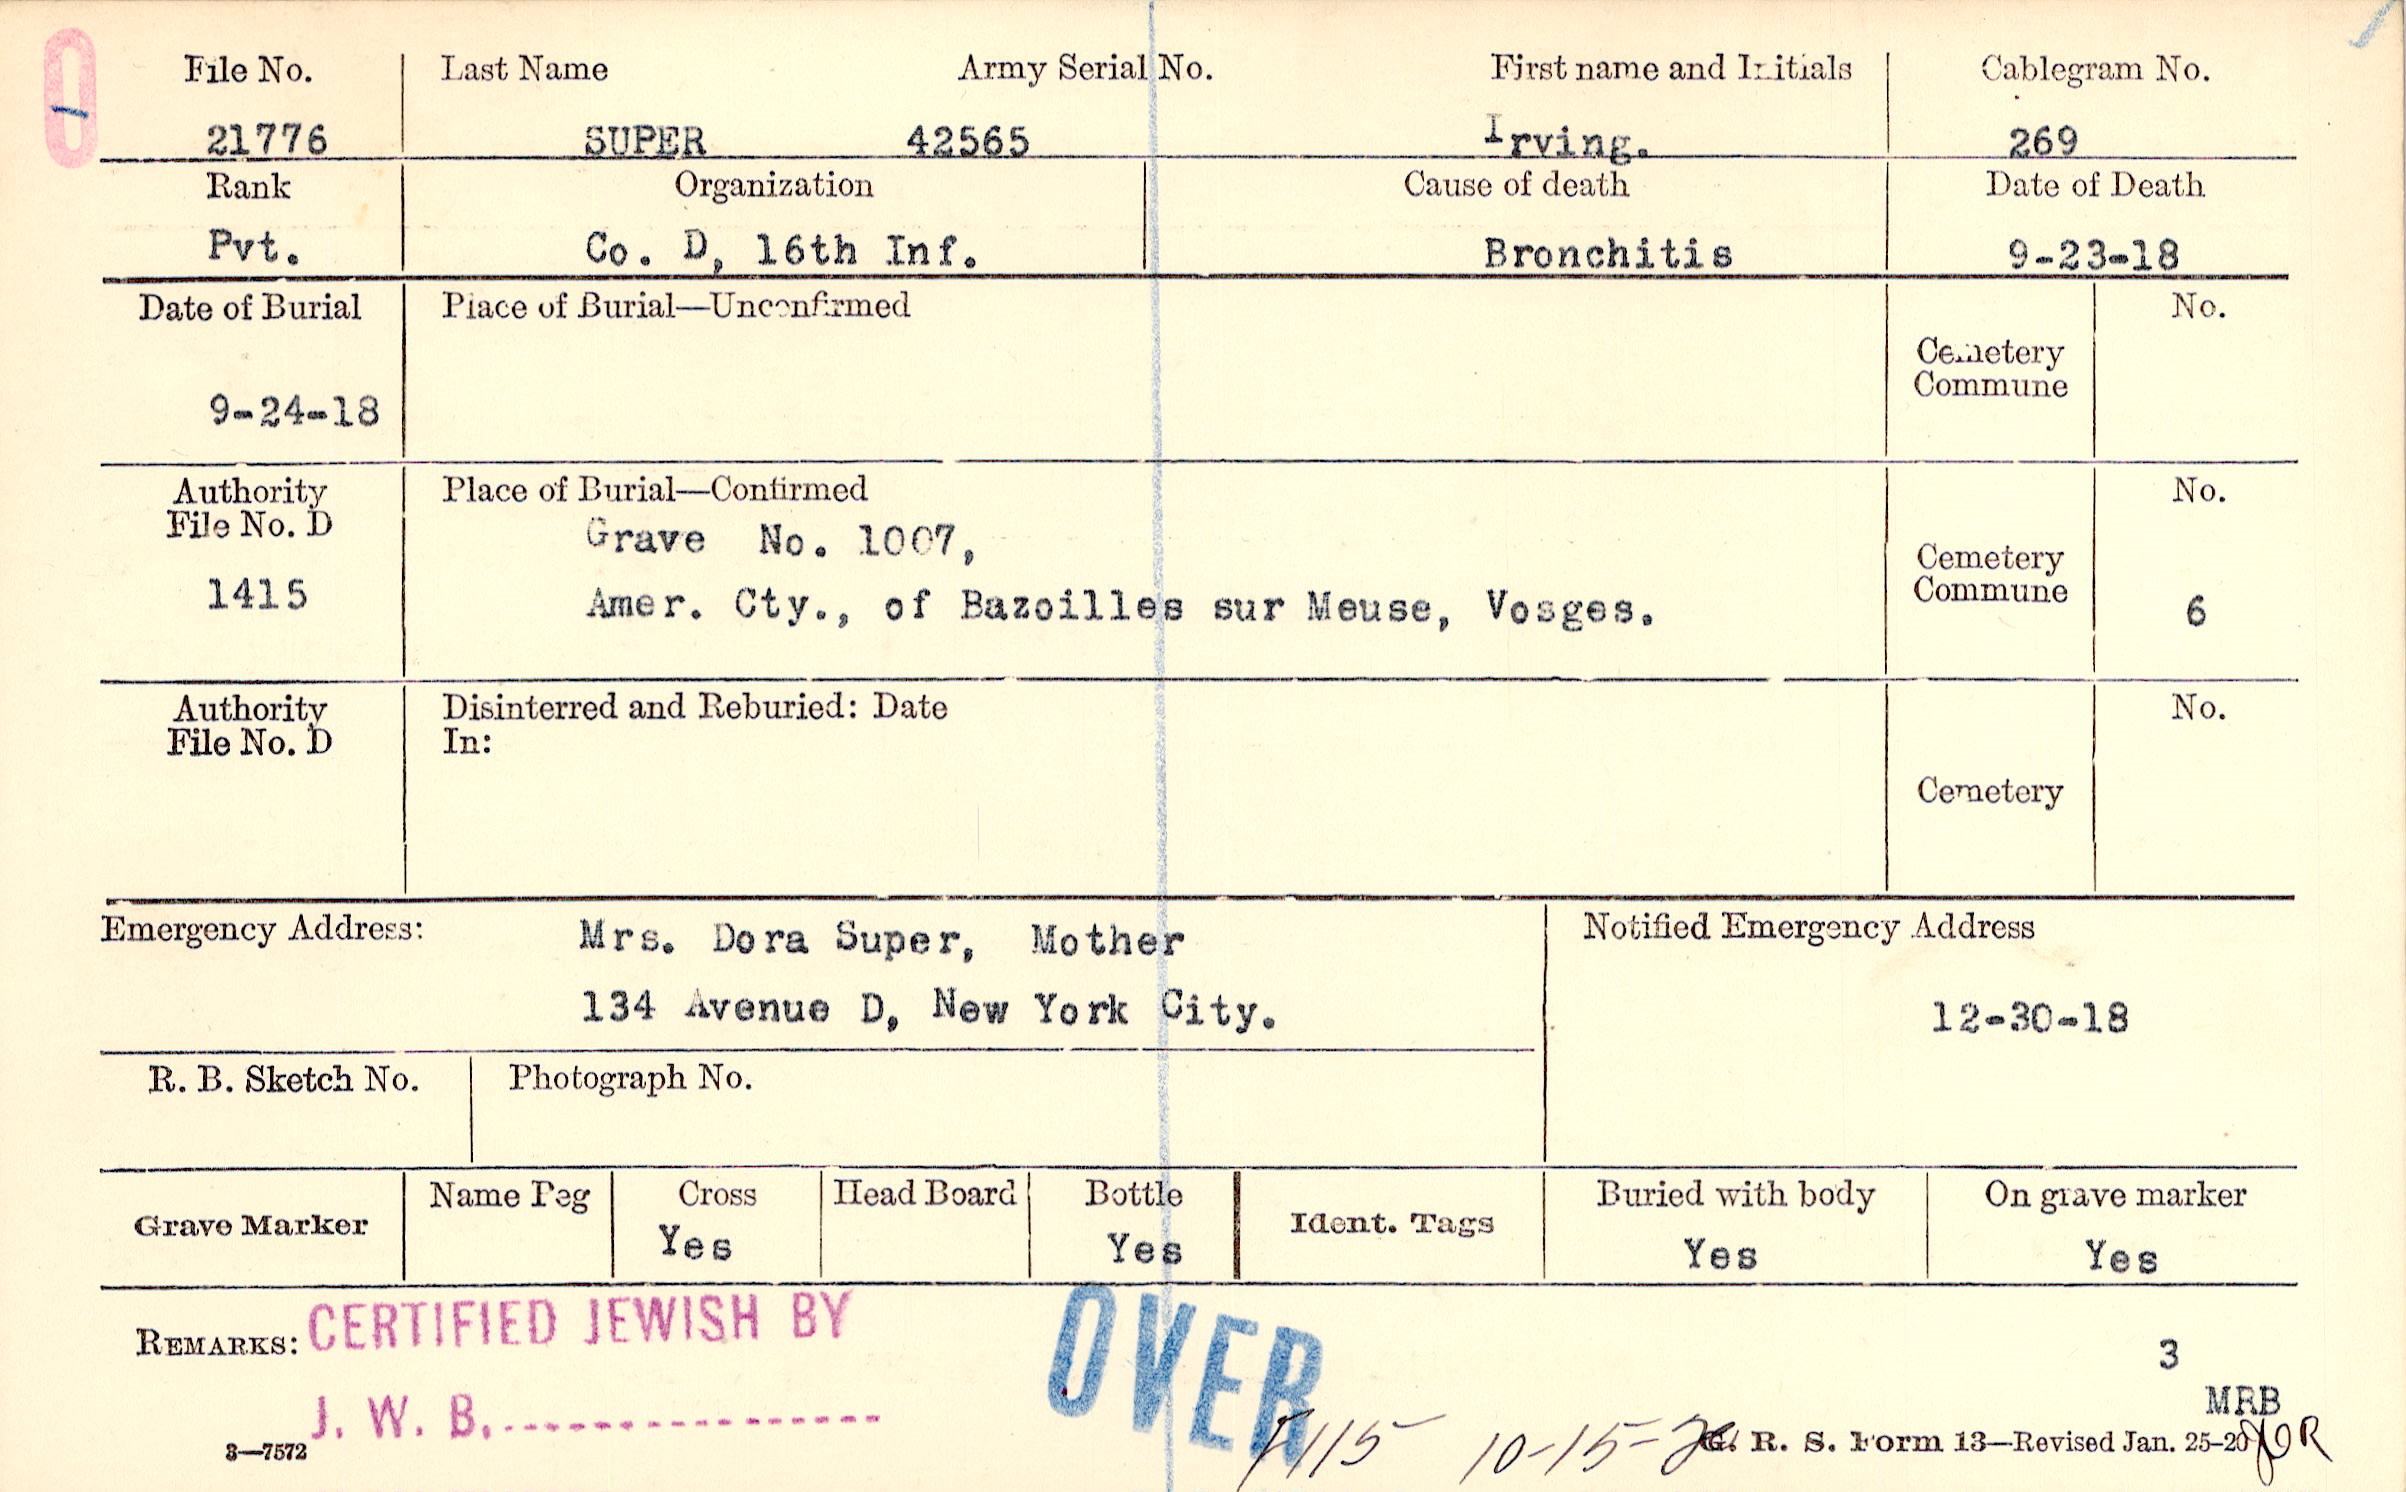 File No. Last Name Army Serial No. First name and Initials Cablegram No.
21776 SUPER 42565 Irving. 269
Rank Organization Cause of death Date of Death
Pvt. Co. D, 16th Inf. Bronchitis 9-23-18
Date of Burial Place of Burial—Unconfirmed No.
Cemetery
Commune
9-24-18
Authority Place of Burial—Confirmed No.
File No. D
Grave No. 1007,
Cemetery
Commune
1415 Amer. Cty., of Bazoilles sur Meuse, Vosges. 6
Authority Disinterred and Reburied: Date No.
File No. D In:
Cemetery
Emergency Address: Mrs. Dora Super, Mother Notified Emergency Address
134 Avenue D, New York City. 12-30-18
R. B. Sketch No. Photograph No.
Grave Marker Name Peg Cross Head Board Bottle Ident. Tags Buried with body On grave marker
Yes Yes Yes Yes
REMARKS: CERTIFIED JEWISH BY
J. W. B.
OVER
3
MRB
3—7572 10-15- G. R. S. Form 13—Revised Jan. 25-20